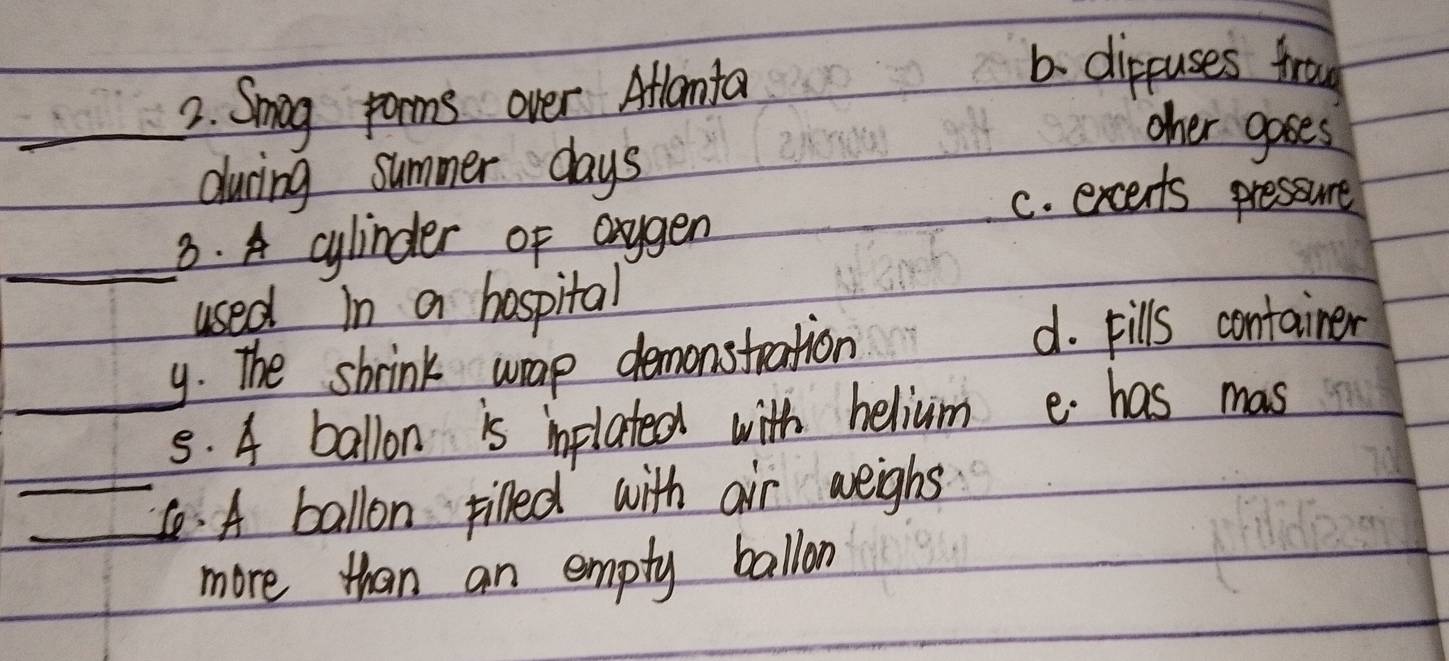 2. Smog forms over Atlanta
during summer days
3. A cylinder of oxygen
used in a hospital
4. The shrink wrap demonstration
5. A ballon is inflated with helium
6. A ballon filled with air weighs
more than an empty ballon
b. diffuses
other gases
c. excerts pressure
d. fills container
e. has mas